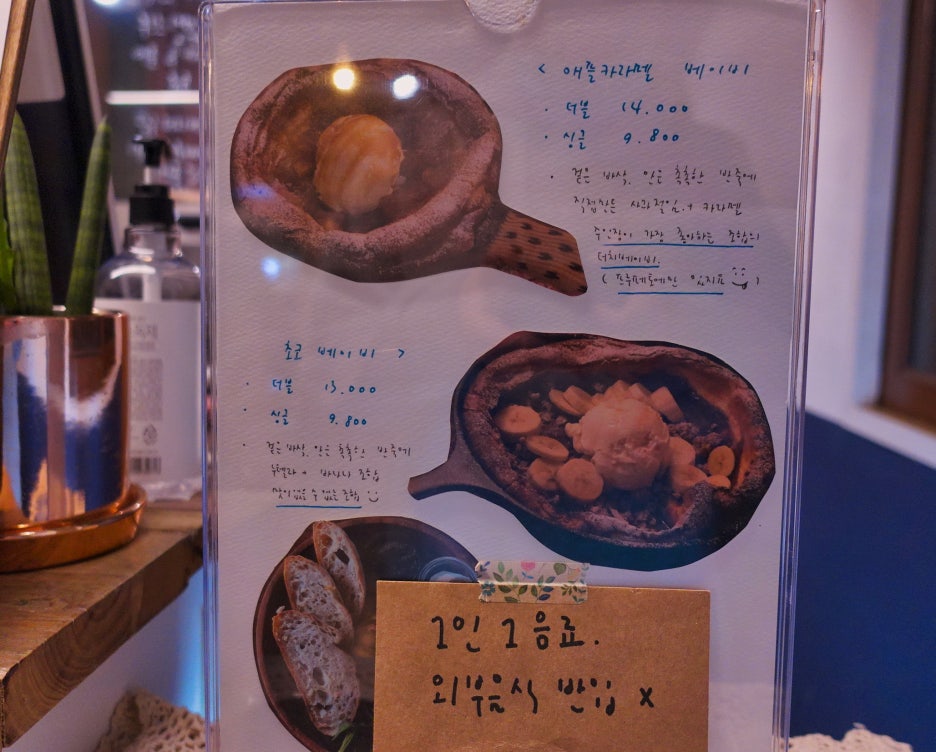 < 애플카라멜 베이비
· 더블 14.000
· 싱글 9.800
· 겉은 바삭, 안은 촉촉한 반죽에
직접만든 사과절임 + 카라멜
주인장이 가장 좋아하는 조합의
더치베이비.
( 프루떼토에만 있지요 )
초코 베이비 >
· 더블 13.000
· 싱글 9.800
· 겉은 바삭, 안은 촉촉한 반죽에
누텔라 + 바나나 조합
맛이 없을 수 없는 조합
1인 1음료.
외부음식 반입 x